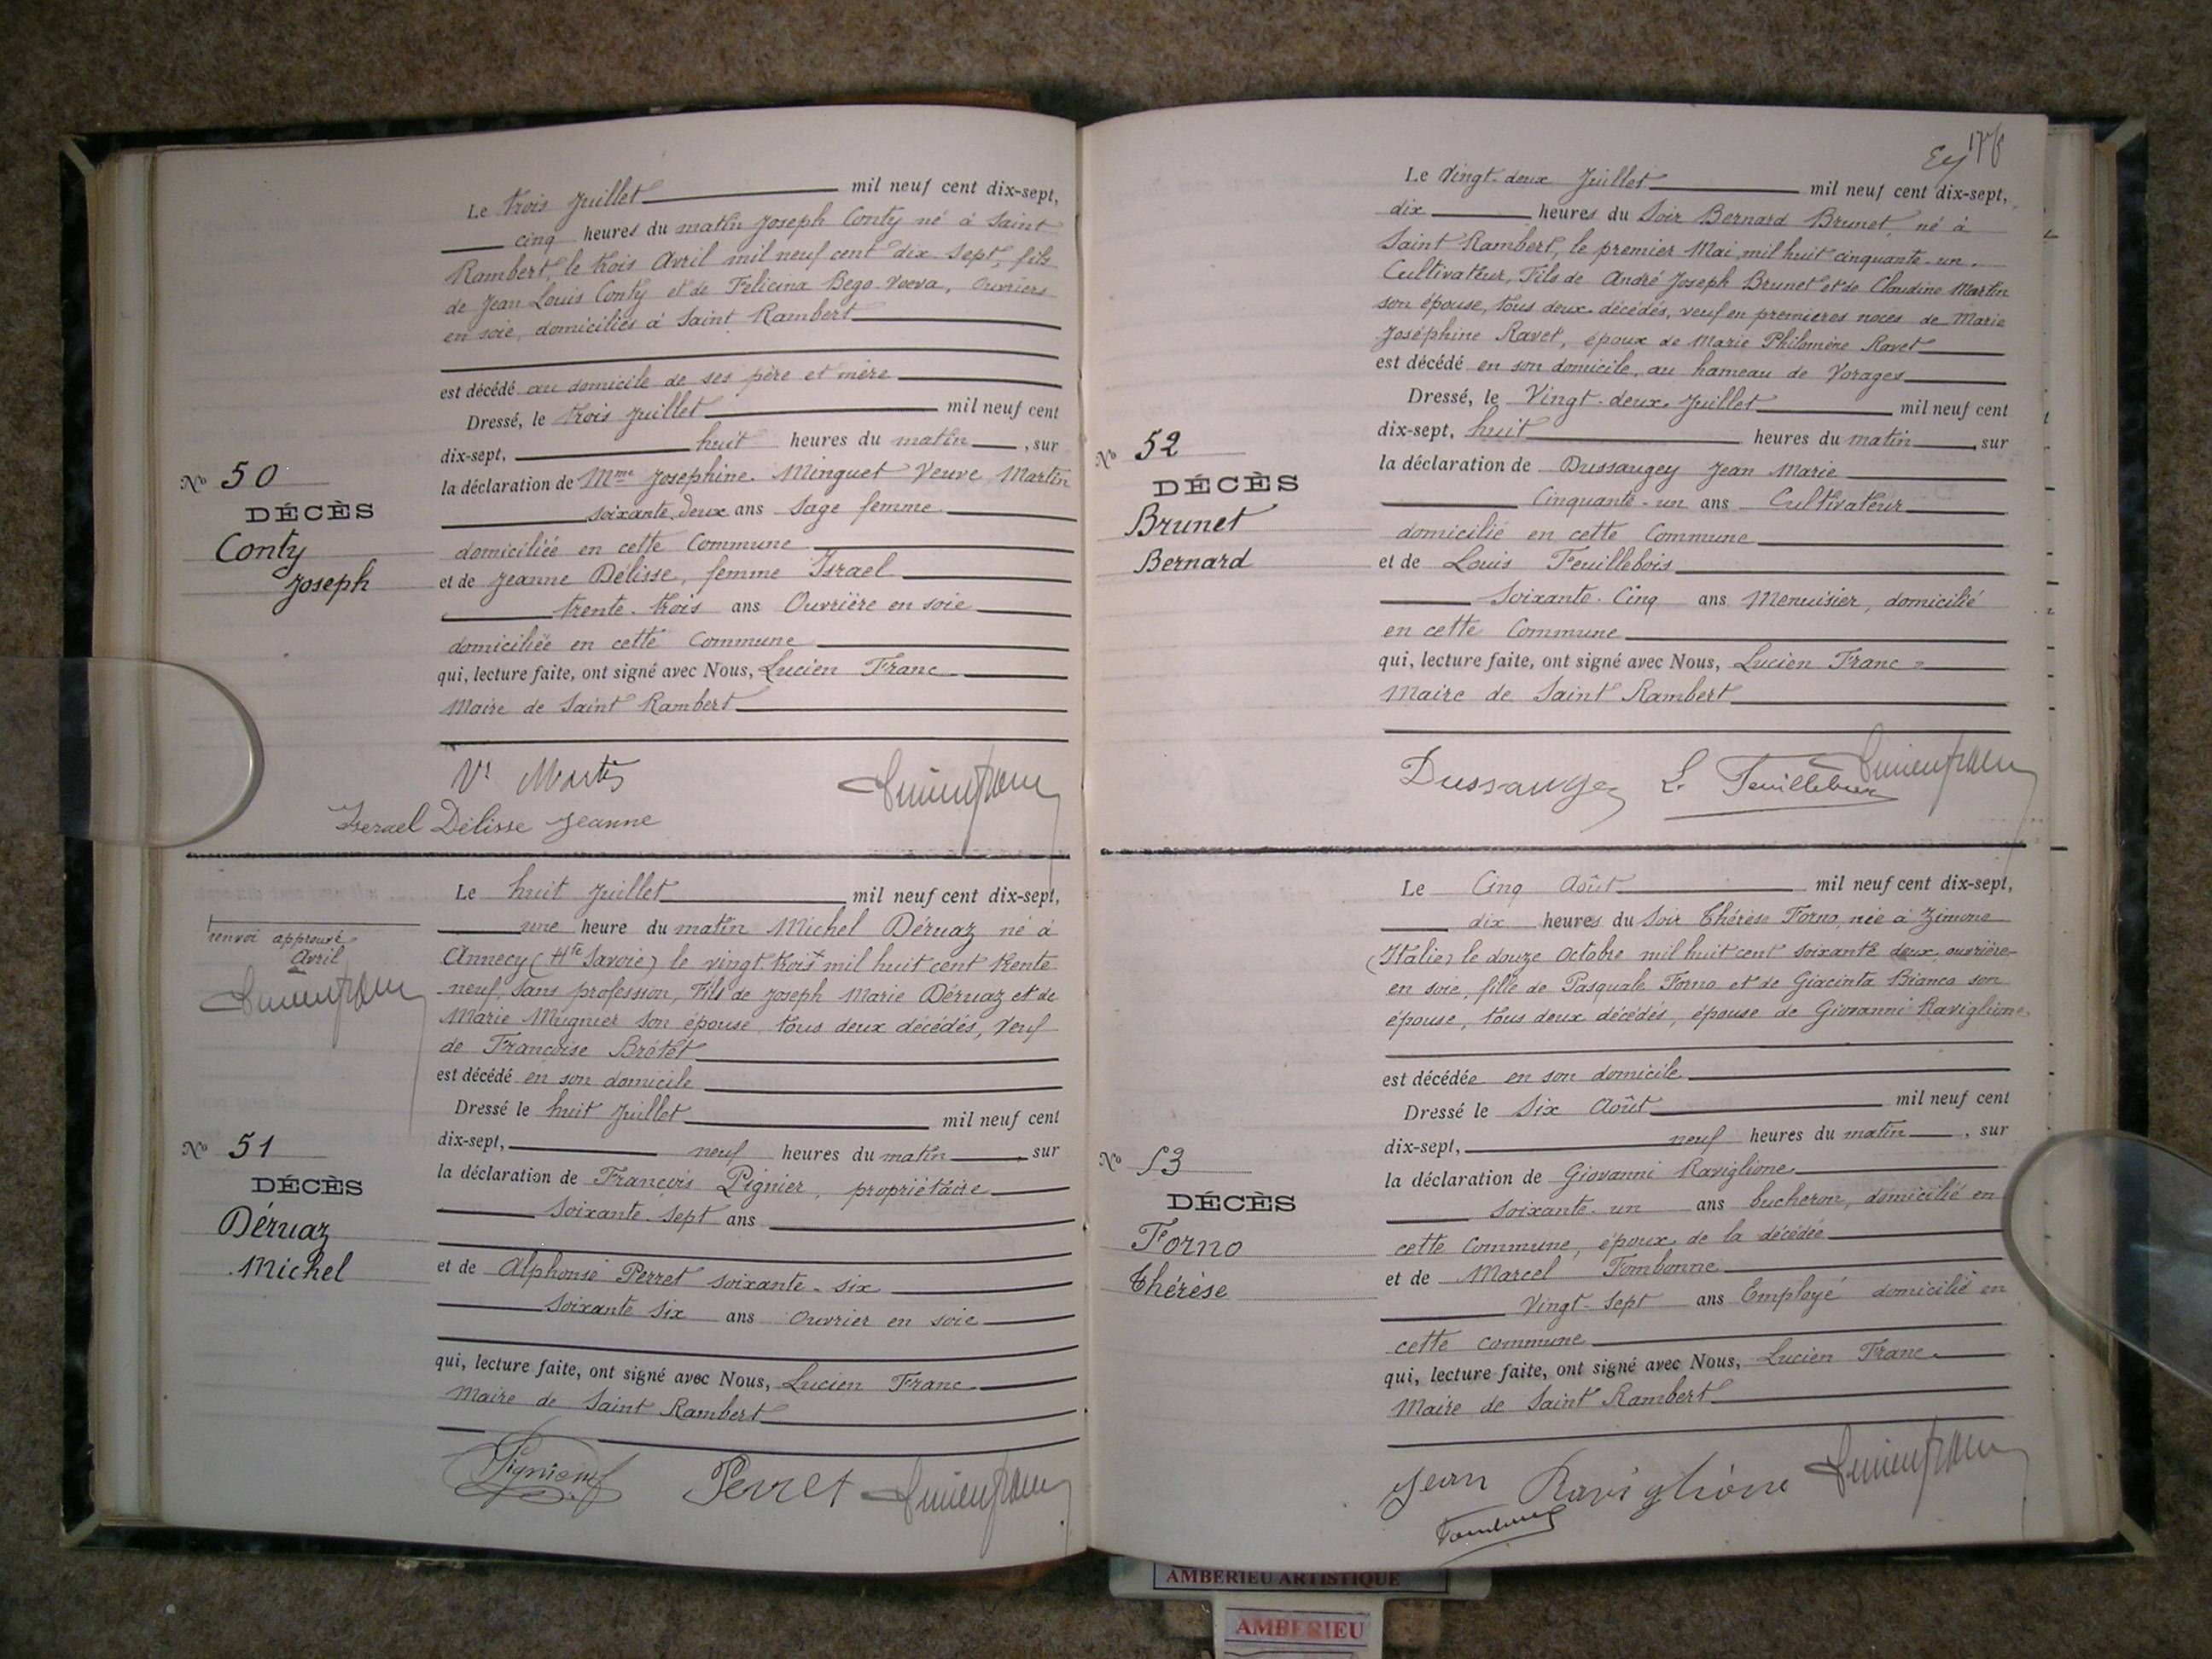 Le trois Juillet mil neuf cent dix-sept,
cinq heures du matin Joseph Conty né à Saint
Rambert, le trois Avril mil neuf cent dix-sept, fils
de Jean Louis Conty et de Felicina Bego, ouvriers
en soie, domiciliés à Saint Rambert
est décédé au domicile de ses père et mère
Dressé, le trois Juillet mil neuf cent
dix-sept, huit heures du matin, sur
la déclaration de Mme Josephine Minguet Veuve Martin
soixante deux ans Sage femme
domiciliée en cette Commune
et de Jeanne Délisse, femme Israel
trente-trois ans Ouvrière en soie
domiciliée en cette Commune
qui, lecture faite, ont signé avec Nous, Lucien Franc
Maire de Saint Rambert
No 50
DÉCÈS
Conty
Joseph
Vve Martin
Iserael Délisse Jeanne
Le huit Juillet mil neuf cent dix-sept,
une heure du matin Michel Déruaz né à
Annecy (Hte Savoie) le vingt-trois mil huit cent trente
neuf, sans profession, Fils de Joseph Marie Déruaz et de
Marie Mugnier son épouse, tous deux décédés, Veuf
de Françoise Brétet
est décédé en son domicile
Dressé le huit Juillet mil neuf cent
dix-sept, neuf heures du matin, sur
la déclaration de François Pignier, propriétaire
soixante-sept ans
et de Alphonse Perret soixante-six
soixante six ans Ouvrier en soie
qui, lecture faite, ont signé avec Nous, Lucien Franc
Maire de Saint Rambert
renvoi approuvé
Avril
No 51
DÉCÈS
Déruaz
Michel
Pignier Perret
176
Le Vingt-deux Juillet mil neuf cent dix-sept,
dix heures du Soir Bernard Brunet, né à
Saint Rambert, le premier Mai mil huit cinquante-un.
Cultivateur, Fils de André Joseph Brunet et de Claudine Martin
son épouse, tous deux décédés, veuf en premières noces de Marie
Joséphine Ravet, époux de Marie Philomène Ravet
est décédé en son domicile, au hameau de Vorages
Dressé, le Vingt-deux Juillet mil neuf cent
dix-sept, huit heures du matin, sur
la déclaration de Dussaugey Jean Marie
Cinquante-un ans Cultivateur
domicilié en cette Commune
et de Louis Feuillebois
Soixante-Cinq ans Menuisier, domicilié
en cette Commune
qui, lecture faite, ont signé avec Nous, Lucien Franc
Maire de Saint Rambert
No 52
DÉCÈS
Brunet
Bernard
Dussaugey L. Feuillebois
Le Cinq Août mil neuf cent dix-sept,
dix heures du Soir Thérèse Forno, née à Zimone
(Italie) le douze Octobre mil huit cent soixante deux, ouvrière
en soie, fille de Pasquale Forno et de Giacinta Bianco son
épouse, tous deux décédés, épouse de Giovanni Raviglione
est décédée en son domicile
Dressé le Six Août mil neuf cent
dix-sept, neuf heures du matin, sur
la déclaration de Giovanni Raviglione
soixante-un ans bucheron, domicilié en
cette Commune, époux de la décédée
et de Marcel Tombonne
Vingt-Sept ans Employé domicilié en
cette commune
qui, lecture faite, ont signé avec Nous, Lucien Franc
Maire de Saint Rambert
No 53
DÉCÈS
Forno
Thérèse
Jean Raviglione
AMBERIEU ARTISTIQUE
AMBERIEU